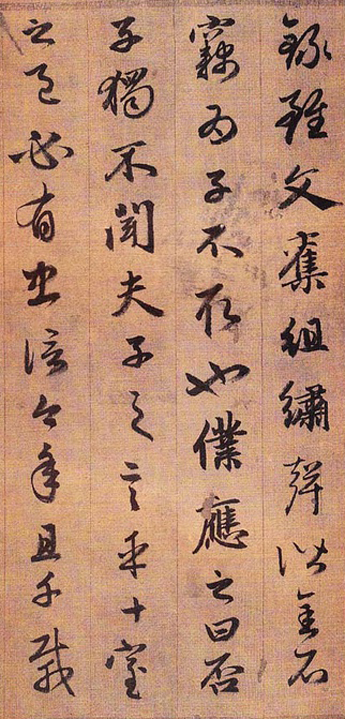 錄雖文奪組繡聲諧金石
竊為子不取也僕應之曰否
子獨不聞夫子之言乎十室
之邑必有忠信今年且千載